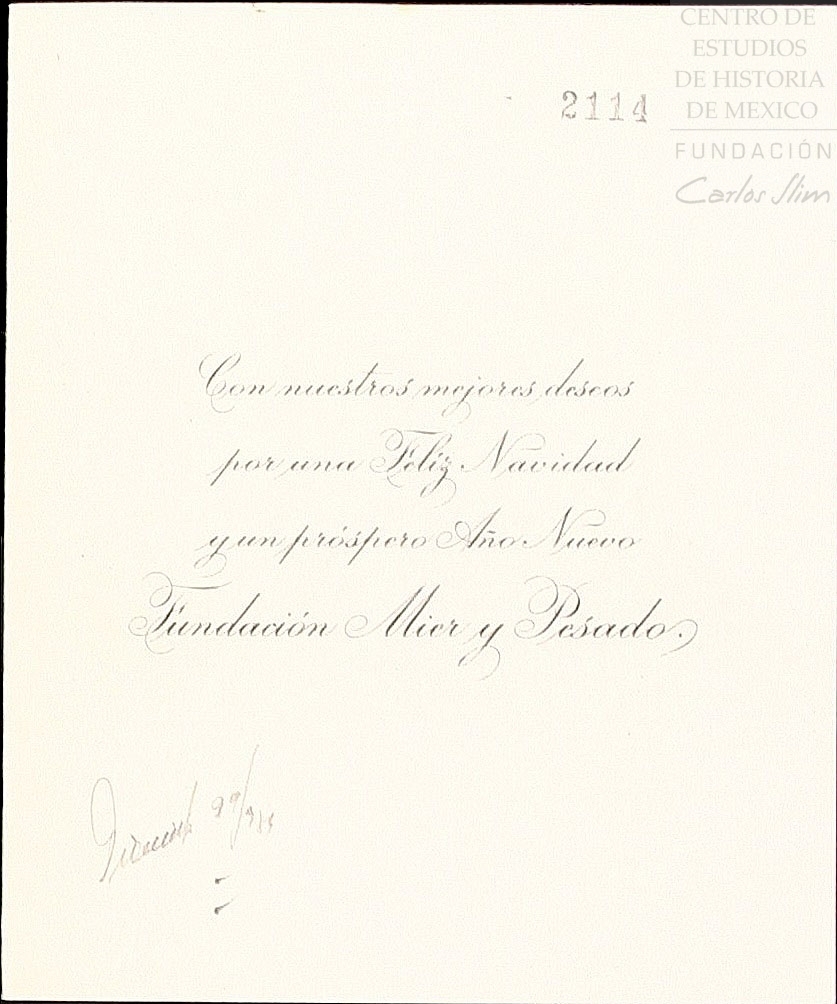 CENTRO DE
ESTUDIOS
DE HISTORIA
DE MEXICO
FUNDACIÓN
Carlos Slim
2114
Con nuestros mejores deseos
por una Feliz Navidad
y un próspero Año Nuevo
Fundación Mier y Pesado.